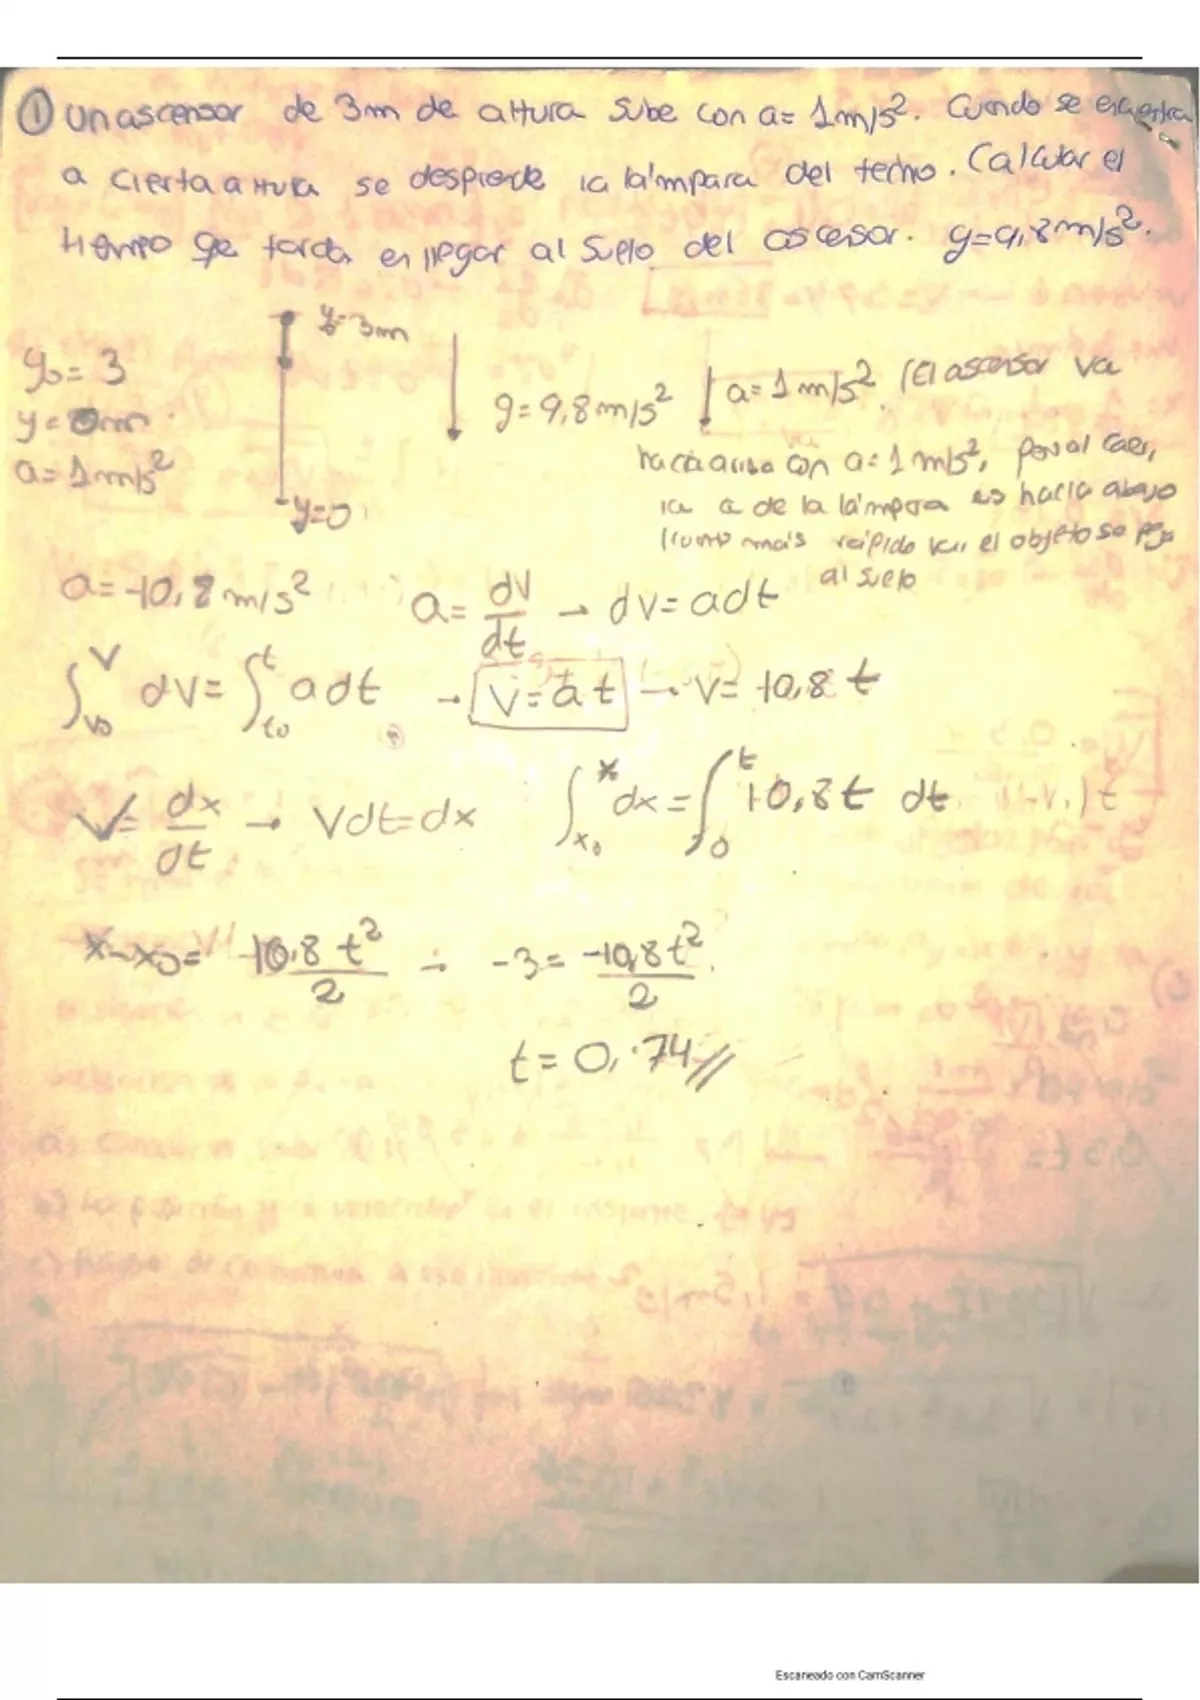 ① Un ascensor de 3m de altura sube con a= 1m/s². Cuando se encuentra
a cierta altura se desprende la lámpara del techo. Calcular el
tiempo qe tarda en llegar al suelo del ascensor. g=9,8m/s².
y₀=3m
y₀=3
y=0m
a=1m/s²
g=9,8m/s²
a=1m/s². (El ascensor va
hacia arriba con a=1m/s², pero al caer,
la a de la lámpara es hacia abajo
más rápido el objeto se
al suelo
y=0
a=-10,8m/s² a= dv/dt → dv=adt
∫ᵥ₀ᵛ dv= ∫ₜ₀ᵗ adt → v=at → v=-10,8 t
v= dx/dt → vdt=dx ∫ₓ₀ˣ dx= ∫₀ᵗ -10,8t dt
x-x₀= -10.8 t²/2 ÷ -3= -10,8t²/2
t=0,74//
Escaneado con CamScanner